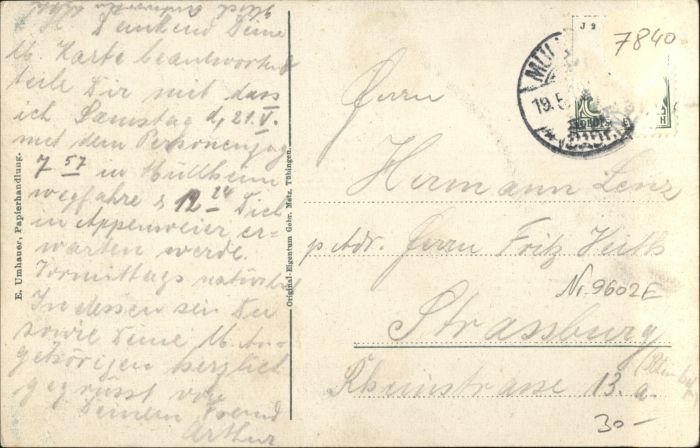 Dankend Deine
l. Karte beantwortend
teile Dir mit dass
ich Samstag d. 21.V.
mit dem Personenzug
7 57 in Müllheim
wegfahre & 12 24 Dich
in Appenweier er-
warten werde.
Vormittags natürlich
Indessen sei Du
sowie Deine l. An-
gehörigen herzlich
gegrüsst von
Deinem Freund
Arthur
E. Umhauer, Papierhandlung.
Original-Eigentum Gebr. Metz, Tübingen.
J 9
7840
MÜL
19.5.
Herrn
Hermann Lenz
p. Adr. Herrn Fritz Veith
Nr. 9602E
Strassburg
Rheinstrasse 13.a.
30-